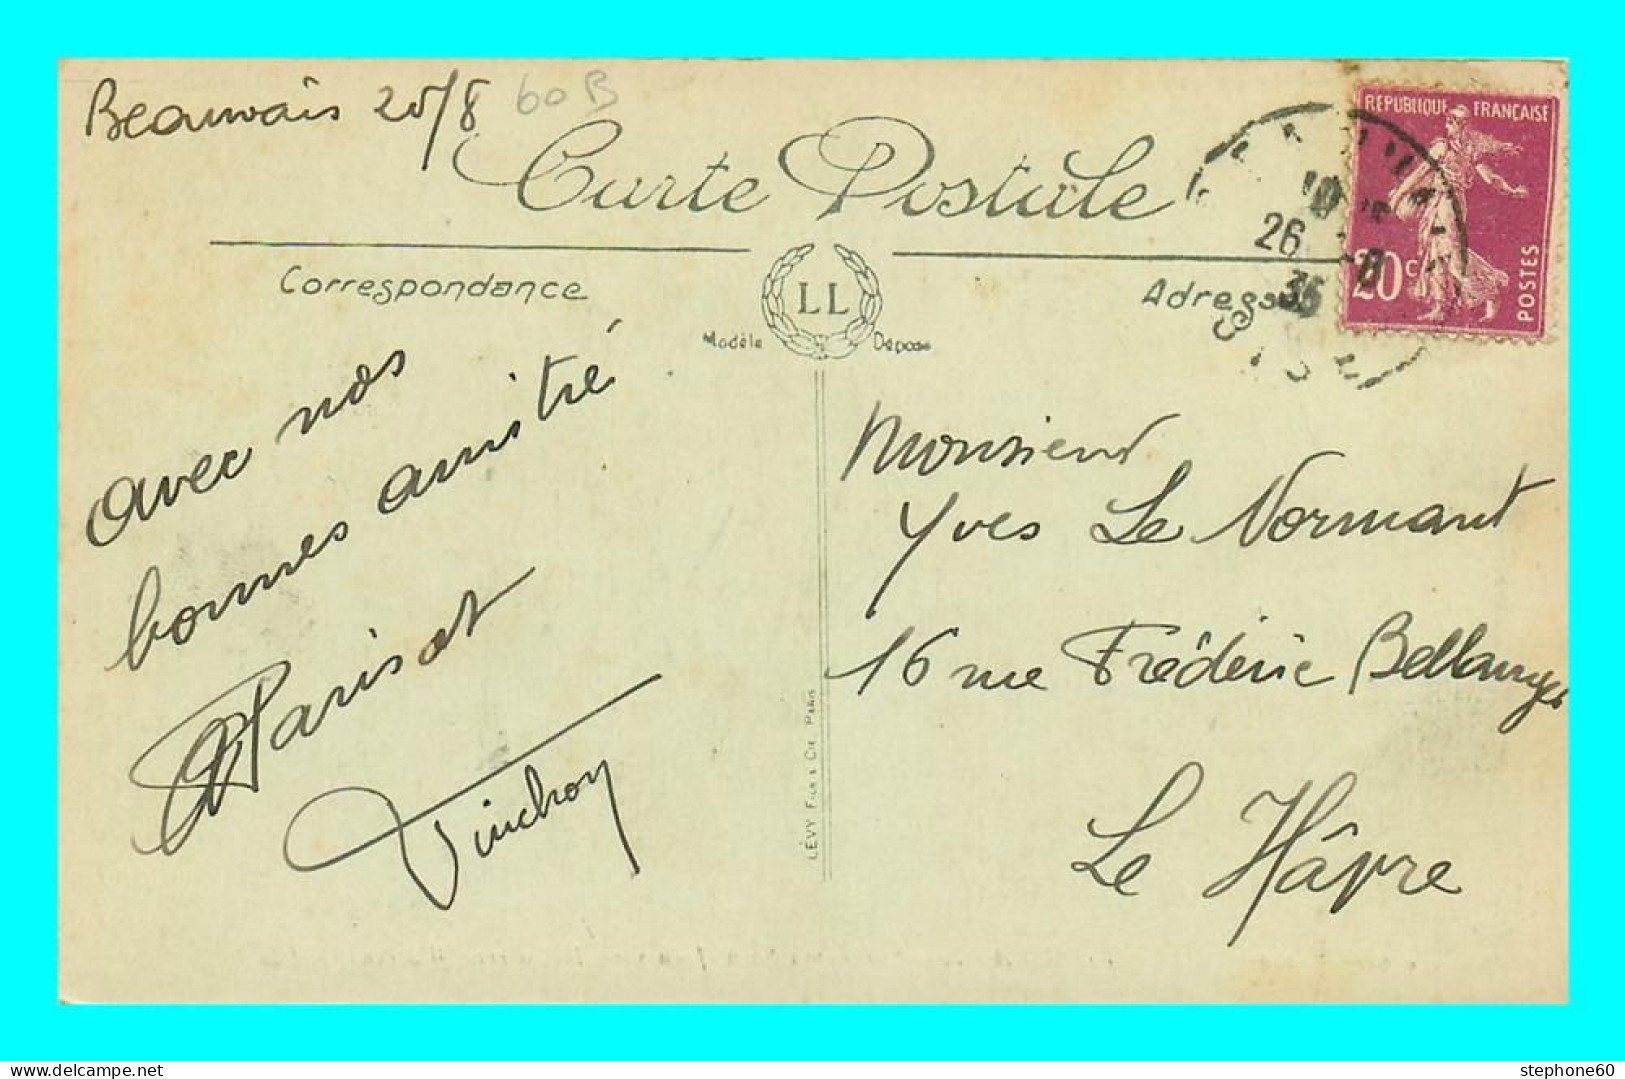 Beauvais 25/8 60 B
Carte Postale
RÉPUBLIQUE FRANÇAISE
20c
POSTES
26 -8
35
OISE
Correspondance
LL
Adresse
Modèle Déposé
avec nos
bonnes amitié
Parisot
Monsieur
Yves Le Normant
16 rue Frédéric Bellanger
Le Hâvre
LÉVY FILS & CIE PARIS
stephone60